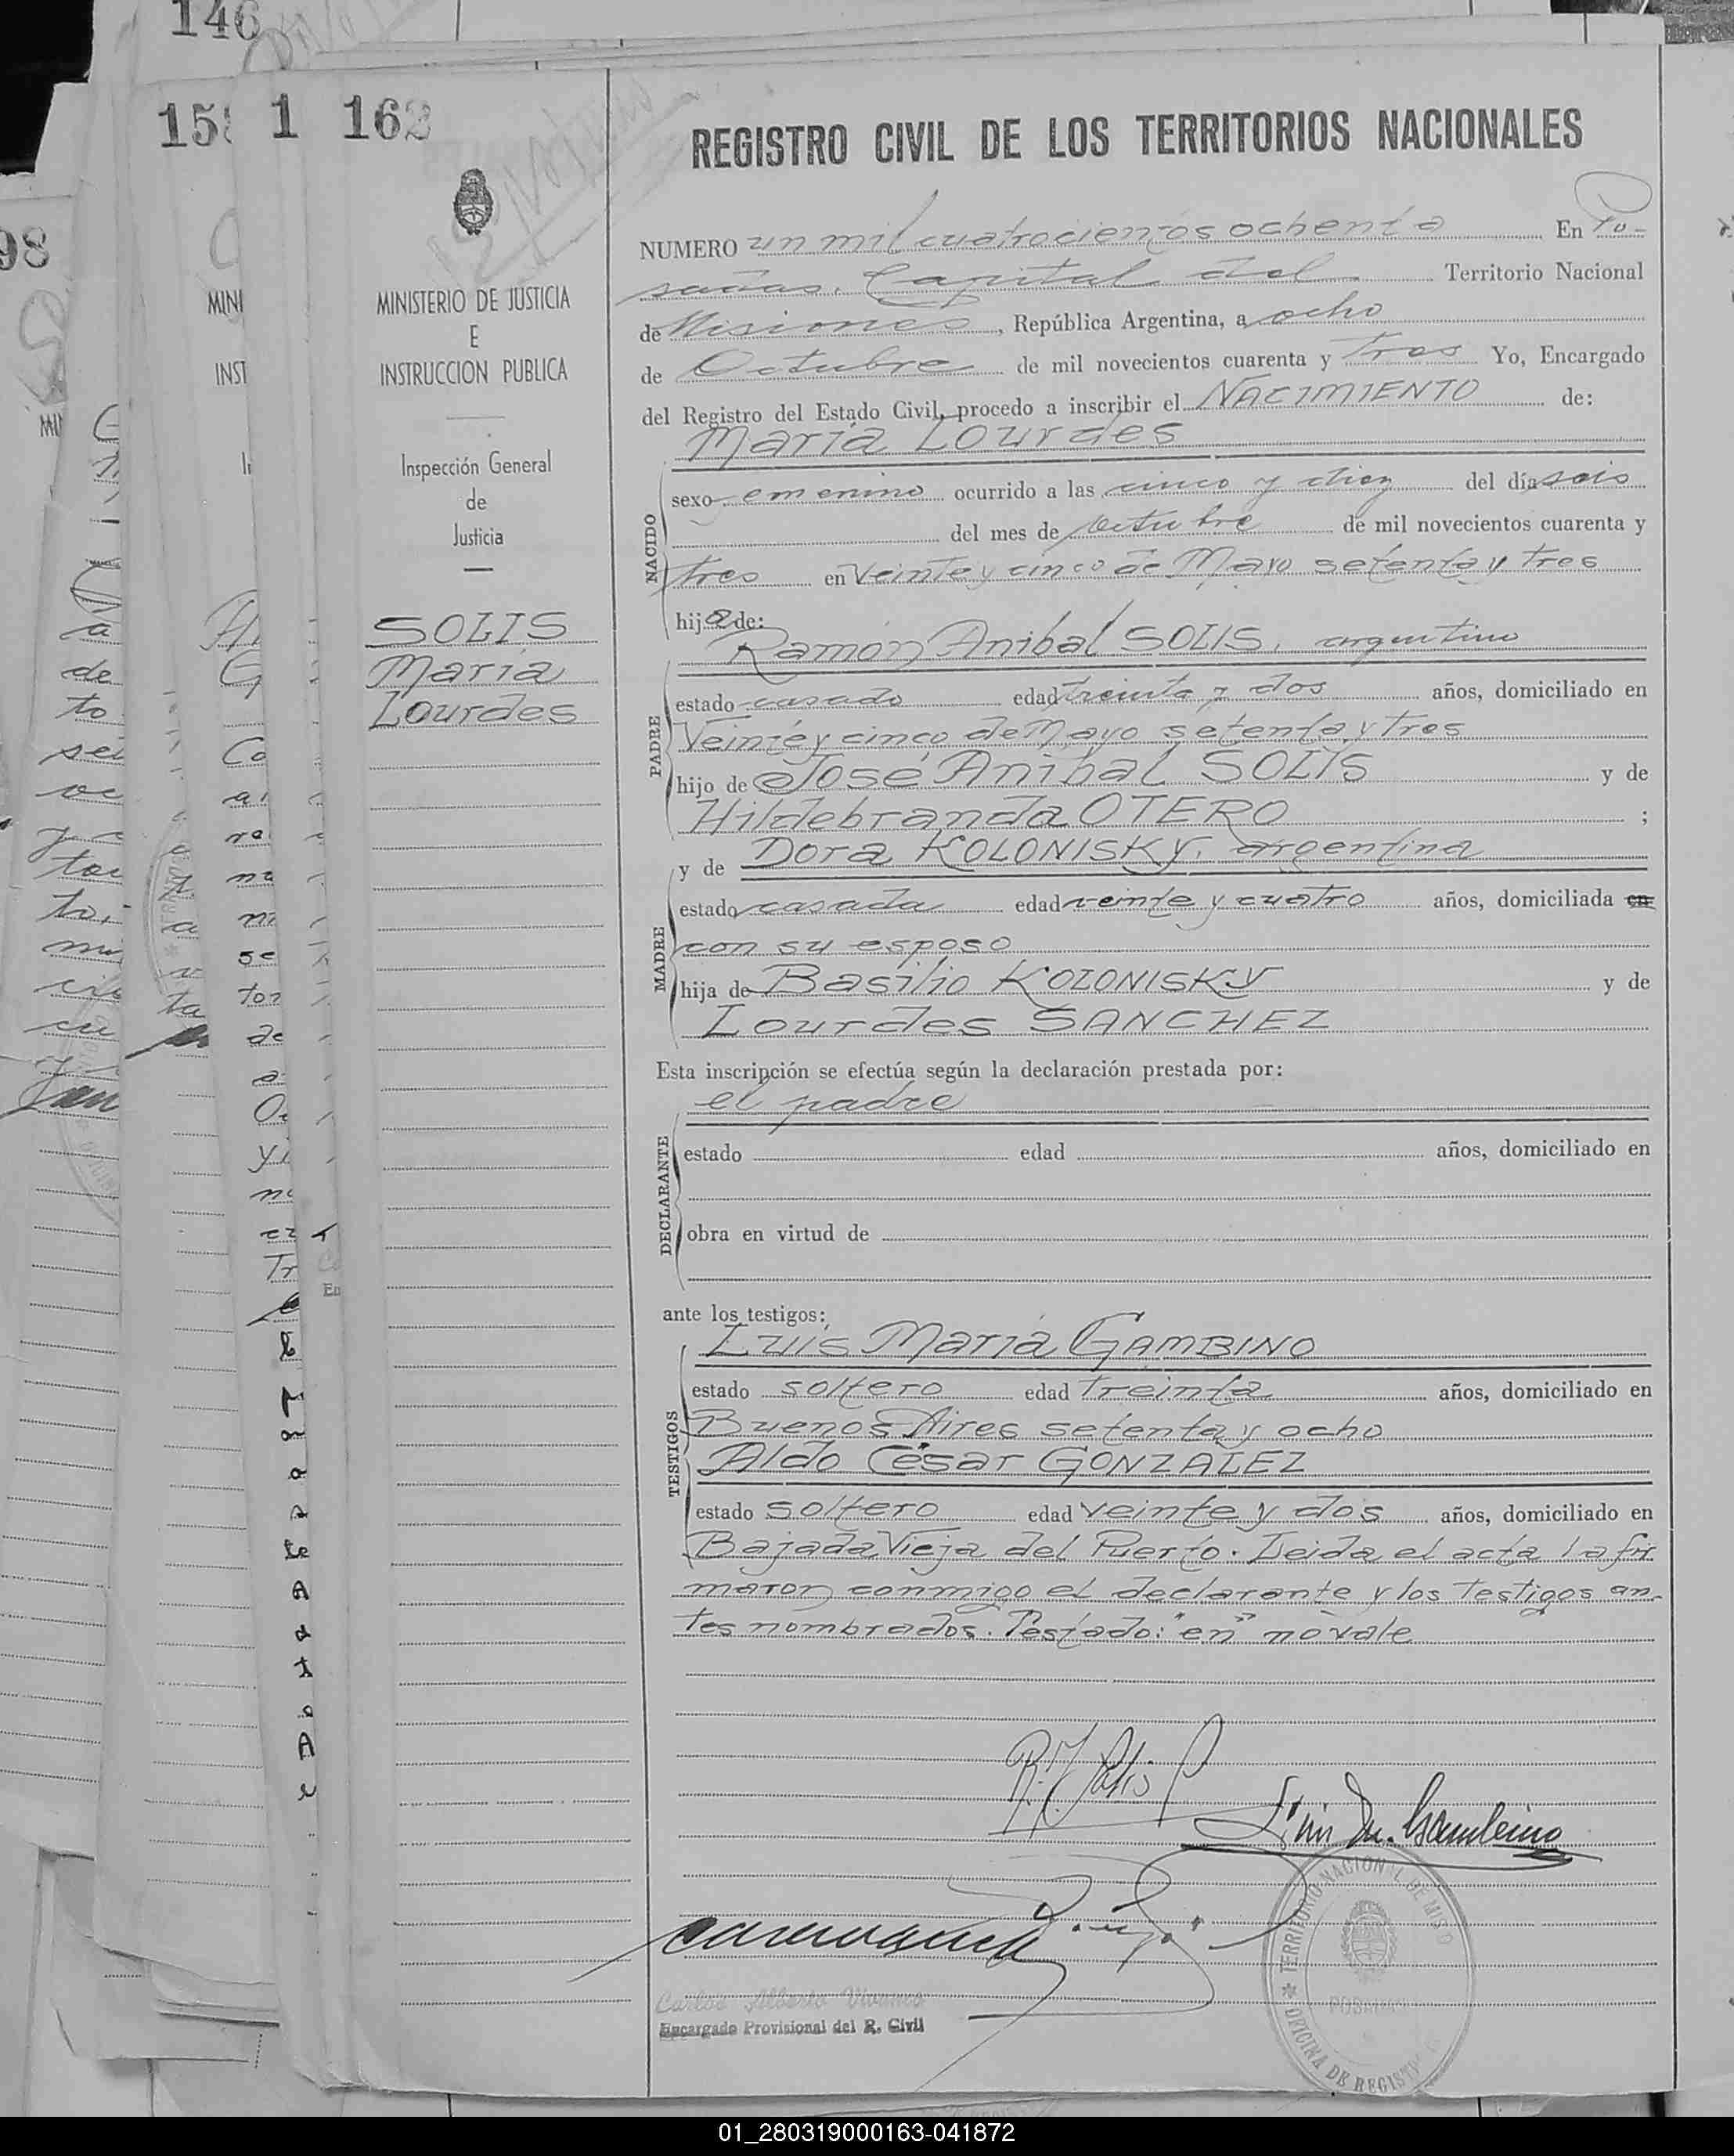 146
98
15
1
162
MINISTERIO DE JUSTICIA
E
INSTRUCCION PUBLICA
Inspección General
de
Justicia
SOLIS
María
Lourdes
REGISTRO CIVIL DE LOS TERRITORIOS NACIONALES
NUMERO un mil cuatrocientos ochenta En Po-
sadas. Capital del Territorio Nacional
de Misiones, República Argentina, a ocho
de Octubre de mil novecientos cuarenta y tres Yo, Encargado
del Registro del Estado Civil, procedo a inscribir el NACIMIENTO de:
María Lourdes
NACIDO
sexo femenino ocurrido a las cinco y diez del día seis
del mes de Octubre de mil novecientos cuarenta y
tres en Veinte y cinco de Mayo setenta y tres
hija de:
Ramón Anibal SOLIS, argentino
PADRE
estado casado edad treinta y dos años, domiciliado en
Veinte y cinco de Mayo setenta y tres
hijo de José Anibal SOLIS y de
Hildebranda OTERO ;
y de Dora KOLONISKY, argentina
MADRE
estado casada edad veinte y cuatro años, domiciliada en
con su esposo
hija de Basilio KOLONISKY y de
Lourdes SANCHEZ
Esta inscripción se efectúa según la declaración prestada por:
el padre
DECLARANTE
estado edad años, domiciliado en
obra en virtud de
ante los testigos:
Luis María GAMBINO
TESTIGOS
estado soltero edad treinta años, domiciliado en
Buenos Aires setenta y ocho
Aldo César GONZALEZ
estado soltero edad veinte y dos años, domiciliado en
Bajada Vieja del Puerto. Leida el acta la fir
maron conmigo el declarante y los testigos an-
tes nombrados. Testado: "en" no vale
R. A. Solis
Luis M. Gambino
Carlos Alberto Vivanco
Encargado Provisional del R. Civil
TERRITORIO NACIONAL DE MISIO
POSADAS
OFICINA DE REGIST
01_280319000163-041872